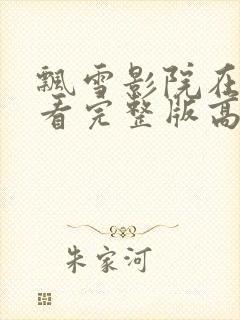 飘雪影院在
看完整版高
朱家河